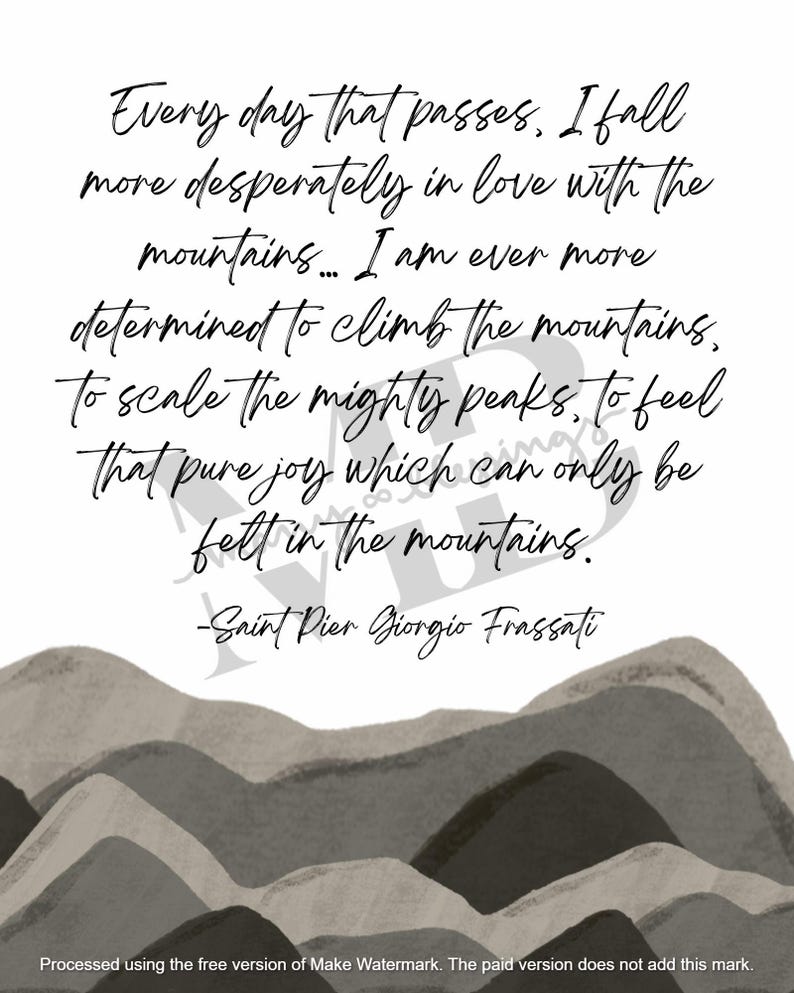 Every day that passes, I fall
more desperately in love with the
mountains... I am ever more
determined to climb the mountains,
to scale the mighty peaks, to feel
that pure joy which can only be
felt in the mountains.
-Saint Pier Giorgio Frassati
many ∞ blessings
Processed using the free version of Make Watermark. The paid version does not add this mark.